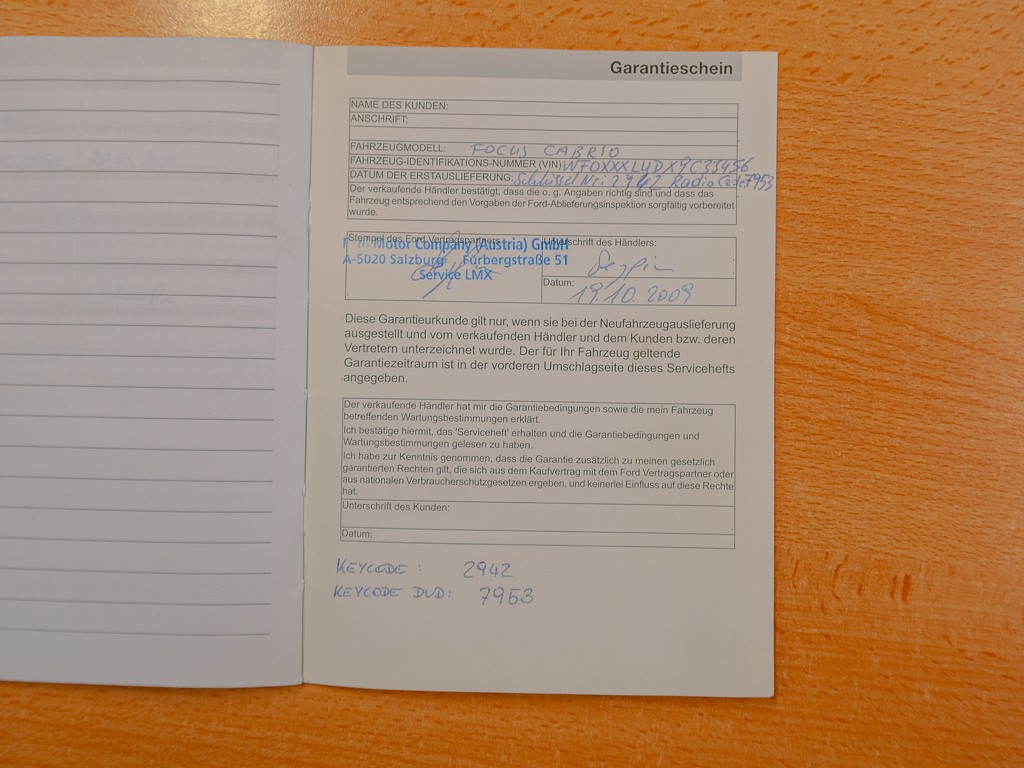 Garantieschein
NAME DES KUNDEN:
ANSCHRIFT:
FAHRZEUGMODELL: FOCUS CABRIO
FAHRZEUG-IDENTIFIKATIONS-NUMMER (VIN) WF0XXXLYDX9C33456
DATUM DER ERSTAUSLIEFERUNG: Schlüssel Nr: 2942 Radio Code: 7953
Der verkaufende Händler bestätigt, dass die o. g. Angaben richtig sind und dass das
Fahrzeug entsprechend den Vorgaben der Ford-Ablieferungsinspektion sorgfältig vorbereitet
wurde.
Stempel des Ford Vertragspartners
Motor Company (Austria) GmbH
A-5020 Salzburg Fürbergstraße 51
Service LMX
Unterschrift des Händlers:
Datum:
19.10.2009
Diese Garantieurkunde gilt nur, wenn sie bei der Neufahrzeugauslieferung
ausgestellt und vom verkaufenden Händler und dem Kunden bzw. deren
Vertretern unterzeichnet wurde. Der für Ihr Fahrzeug geltende
Garantiezeitraum ist in der vorderen Umschlagseite dieses Servicehefts
angegeben.
Der verkaufende Händler hat mir die Garantiebedingungen sowie die mein Fahrzeug
betreffenden Wartungsbestimmungen erklärt.
Ich bestätige hiermit, das 'Serviceheft' erhalten und die Garantiebedingungen und
Wartungsbestimmungen gelesen zu haben.
Ich habe zur Kenntnis genommen, dass die Garantie zusätzlich zu meinen gesetzlich
garantierten Rechten gilt, die sich aus dem Kaufvertrag mit dem Ford Vertragspartner oder
aus nationalen Verbraucherschutzgesetzen ergeben, und keinerlei Einfluss auf diese Rechte
hat.
Unterschrift des Kunden:
Datum:
KEYCODE : 2942
KEYCODE DVD: 7953